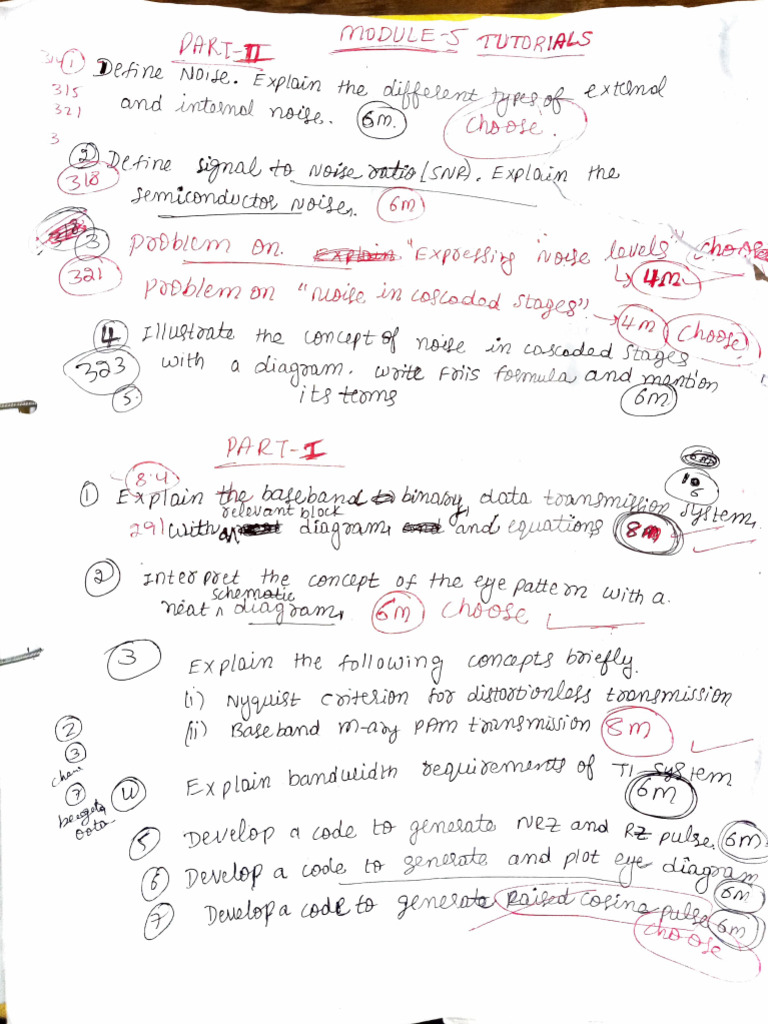 MODULE-5 TUTORIALS
PART-II
314 1 Define Noise. Explain the different types of external
315
321 and internal noise. 6m. choose.
3
2 Define signal to Noise ratio (SNR). Explain the
318 semiconductor Noise. 6m
3 Problem on. Explain "Expressing noise levels choose
321 4m.
Problem on "Noise in cascaded stages" 4m choose
4 Illustrate the concept of noise in cascaded stages
323 with a diagram. Write Friis formula and mention
5. its terms 6m
PART-I
8.4
1 Explain the baseband binary data transmission system,
relevant block
291 with diagram, and equations 8m
10
2 Interpret the concept of the eye pattern with a
schematic
neat ^ diagram, 6m choose
3 Explain the following concepts briefly.
(i) Nyquist criterion for distortionless transmission
(ii) Baseband M-ary PAM transmission 8m
2
3
7
4 Explain bandwidth requirements of T1 system
6m
5 Develop a code to generate NRZ and RZ pulse. 6m
6 Develop a code to generate and plot eye diagram
6m
7 Develop a code to generate Raised cosine pulse 6m
choose